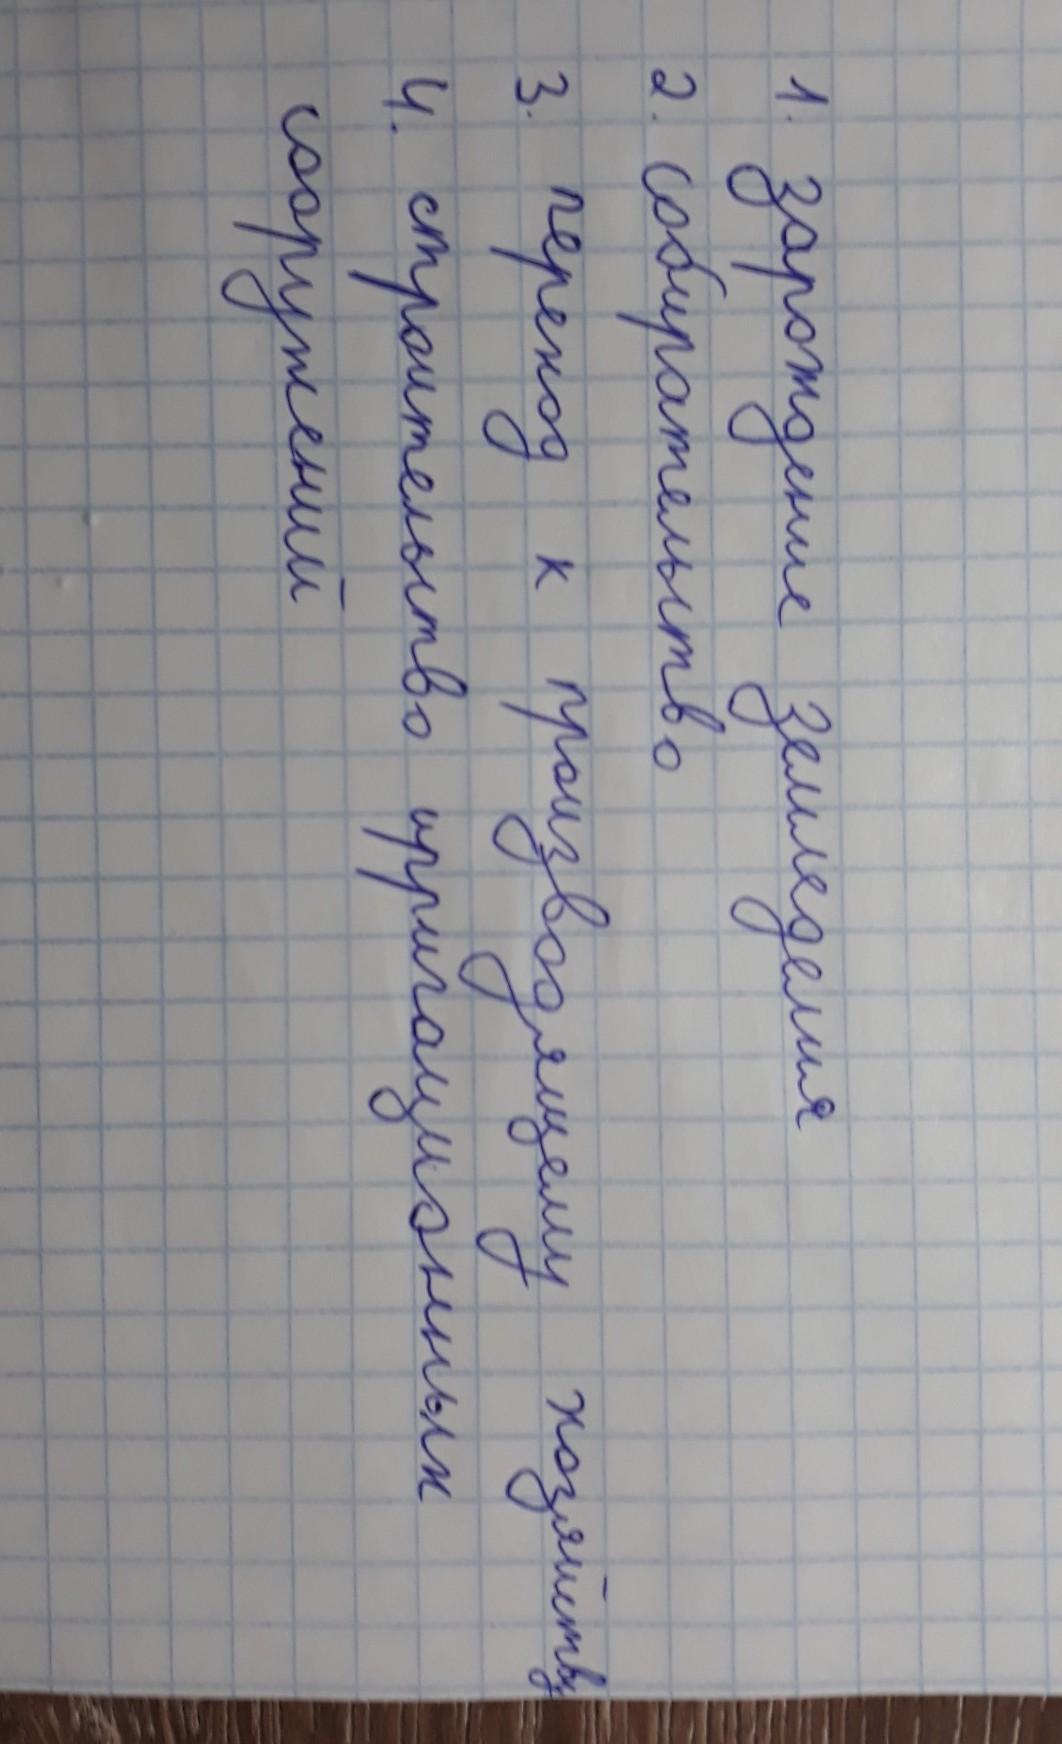 1. зарождение земледелия
2. собирательство
3. переход к производящему хозяйству
4. строительство ирригационных
сооружений